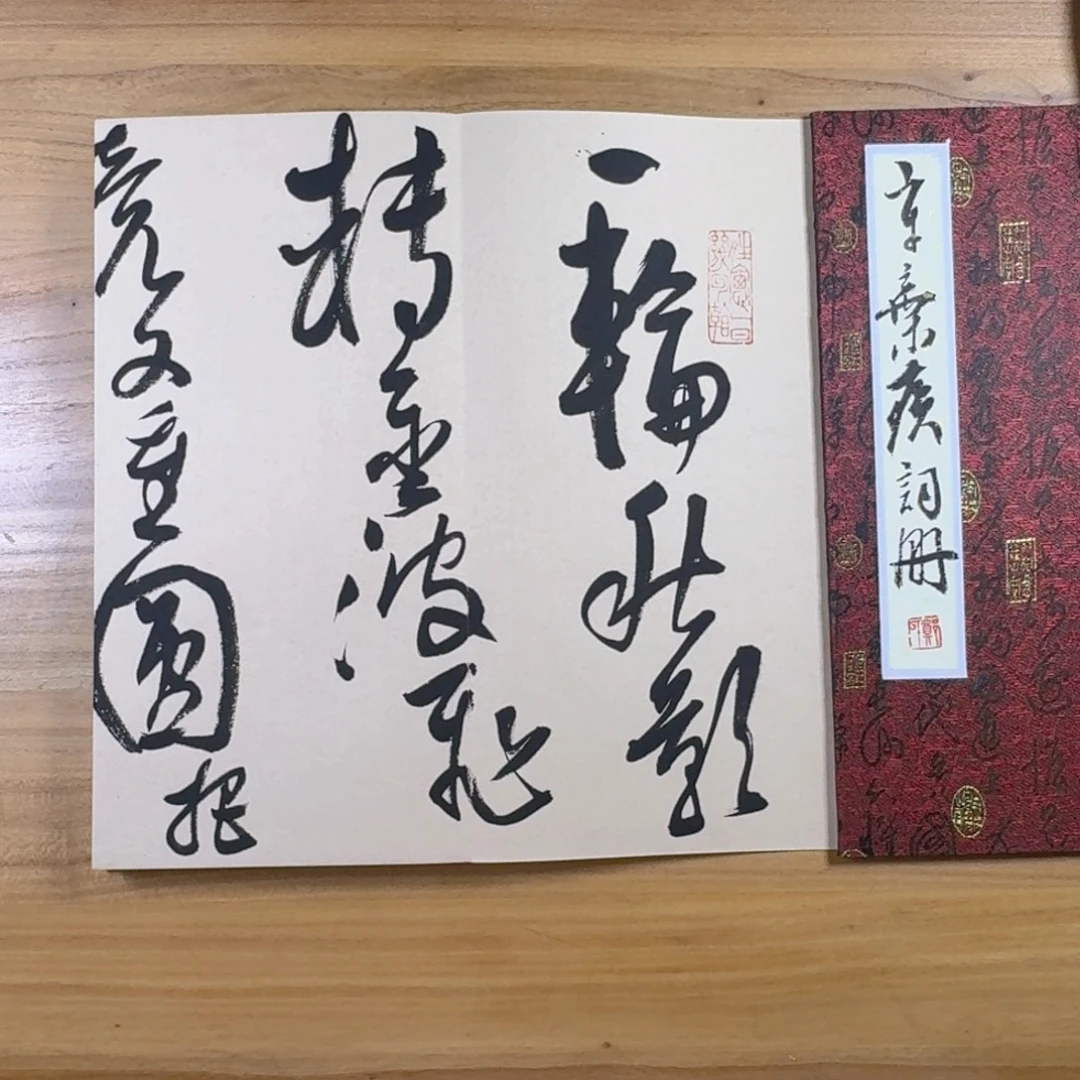 辛棄疾詞冊
一輪秋影
轉金波飛
竟又重圓把